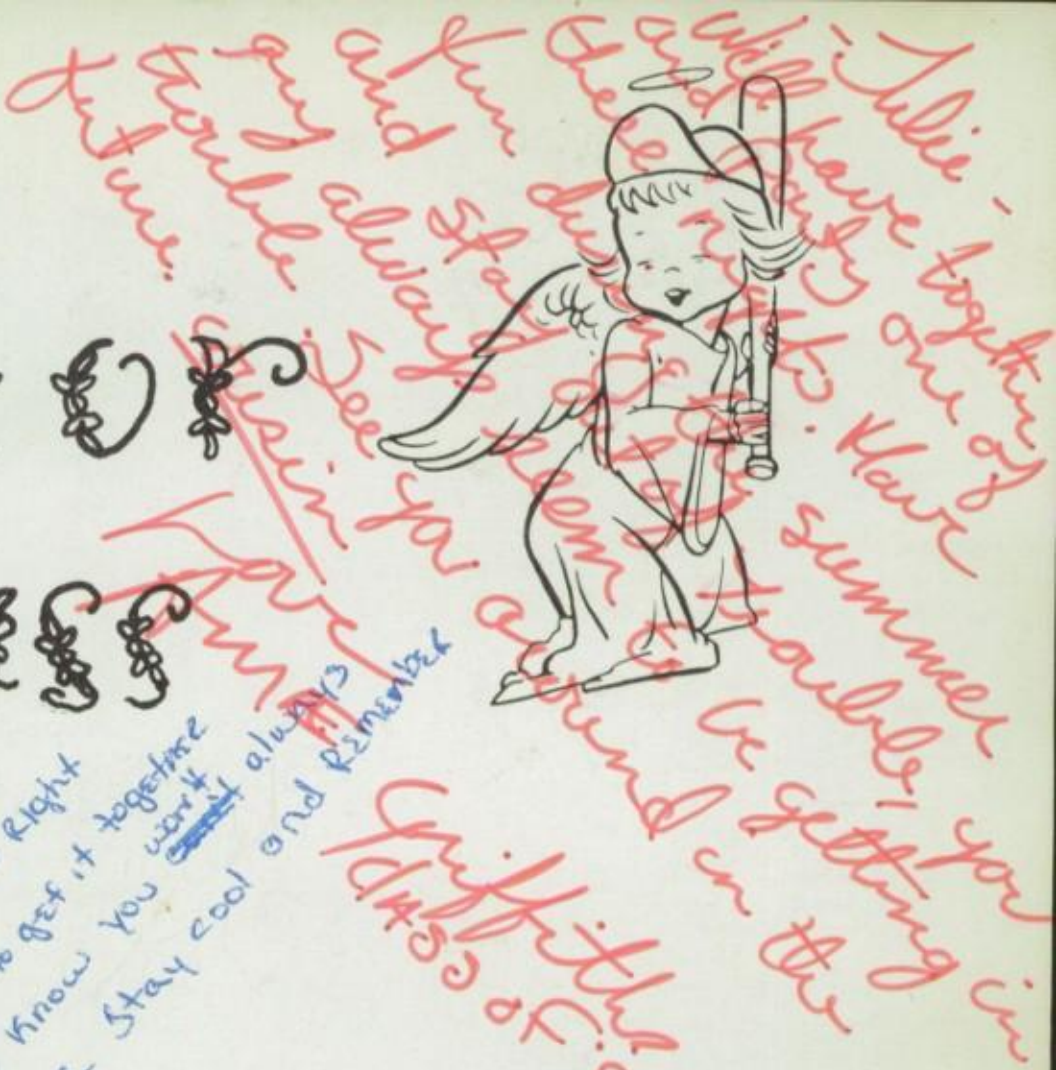 - Julie -
Will have together
and party one of
these nights. Have
fun summer
and stay trouble, you
any always seem to be getting in
trouble. See ya around in the
future.
Cousin
Love
Griffith
Class of
Right
get it together
know you won't always
Stay cool and Remember
ur
ss